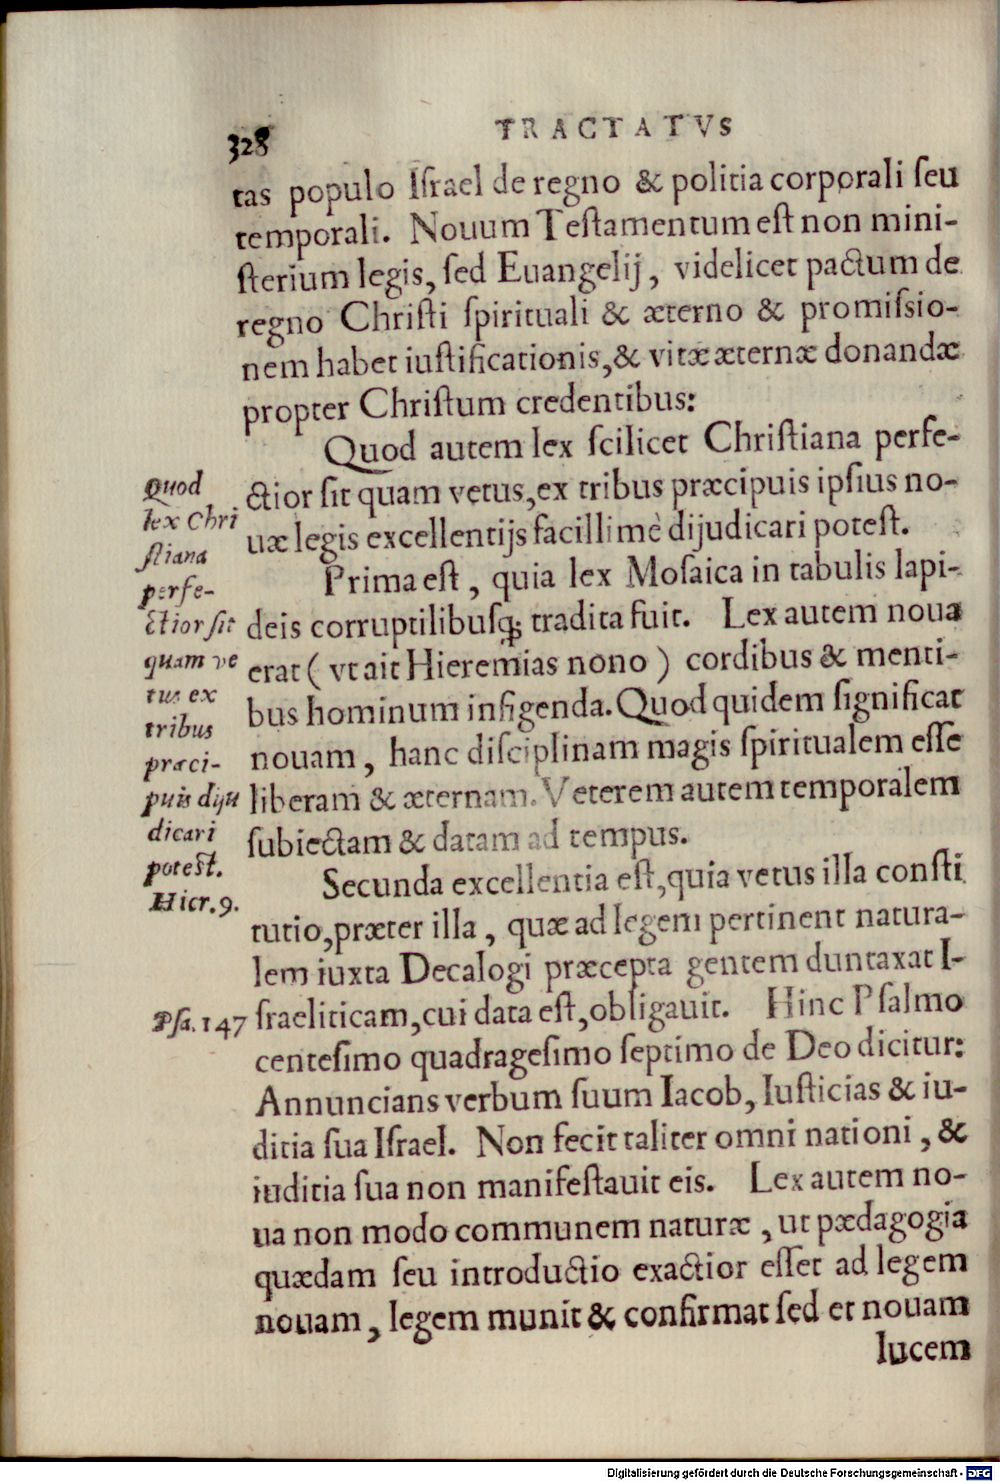 328 TRACTATVS
tas populo Iſrael de regno & politia corporali ſeu
temporali. Nouum Teſtamentum eſt non mini-
ſterium legis, ſed Euangelij, videlicet pactum de
regno Chriſti ſpirituali & æterno & promiſsio-
nem habet iuſtificationis,& vitæ æternæ donandæ
propter Chriſtum credentibus:
Quod autem lex ſcilicet Chriſtiana perfe-
ctior ſit quam vetus,ex tribus præcipuis ipſius no-
uæ legis excellentijs facillimè dijudicari poteſt.
Prima eſt, quia lex Moſaica in tabulis lapi-
deis corruptilibuſq; tradita fuit. Lex autem noua
erat ( vt ait Hieremias nono ) cordibus & menti-
bus hominum infigenda. Quod quidem ſignificat
nouam, hanc diſciplinam magis ſpiritualem eſſe
liberam & æternam. Veterem autem temporalem
ſubiectam & datam ad tempus.
Secunda excellentia eſt,quia vetus illa conſti
tutio,præter illa, quæ ad legem pertinent natura-
lem iuxta Decalogi præcepta gentem duntaxat I-
ſraeliticam,cui data eſt,obligauit. Hinc Pſalmo
centeſimo quadrageſimo ſeptimo de Deo dicitur:
Annuncians verbum ſuum Iacob, Iuſticias & iu-
ditia ſua Iſrael. Non fecit taliter omni nationi, &
iuditia ſua non manifeſtauit eis. Lex autem no-
ua non modo communem naturæ, ut pædagogia
quædam ſeu introductio exactior eſſet ad legem
nouam, legem munit & confirmat ſed et nouam
lucem
Quod
lex Chri
ſtiana
perfe-
ctior ſit
quam ve
tus ex
tribus
præci-
puis diju
dicari
poteſt.
Hier.9.
Pſa.147
Digitalisierung gefördert durch die Deutsche Forschungsgemeinschaft - DFG